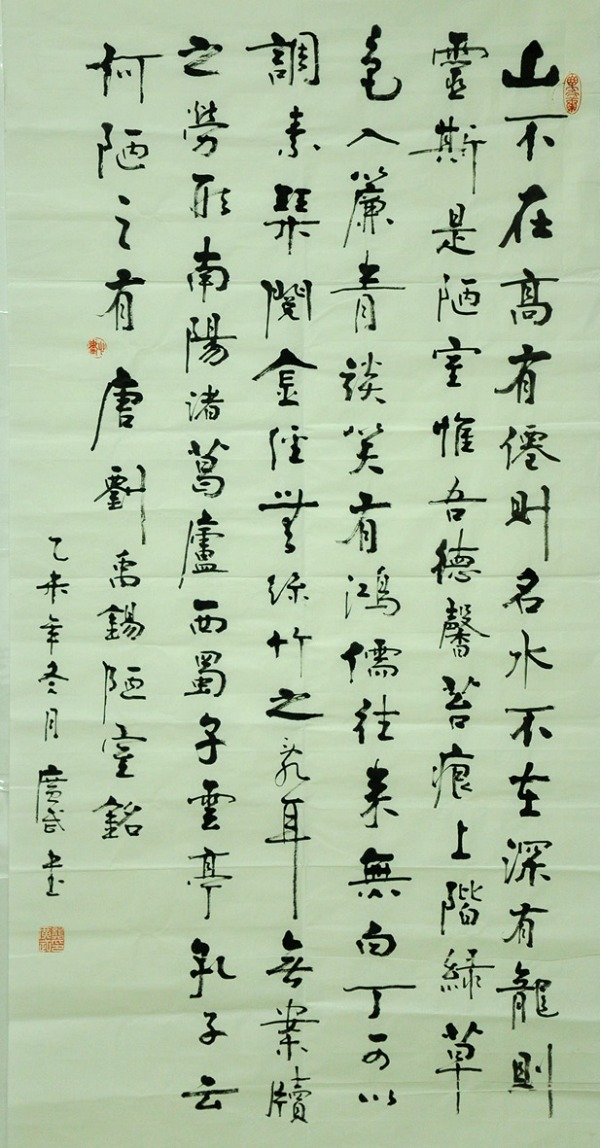 山不在高有僊則名水不在深有龍則
靈斯是陋室惟吾德馨苔痕上階緑草
色入簾青談笑有鴻儒往来無白丁可以
調素琴閱金經無絲竹之亂耳無案牘
之勞形南陽諸葛廬西蜀子雲亭孔子云
何陋之有 唐劉禹錫陋室銘
乙未年冬月廣武書